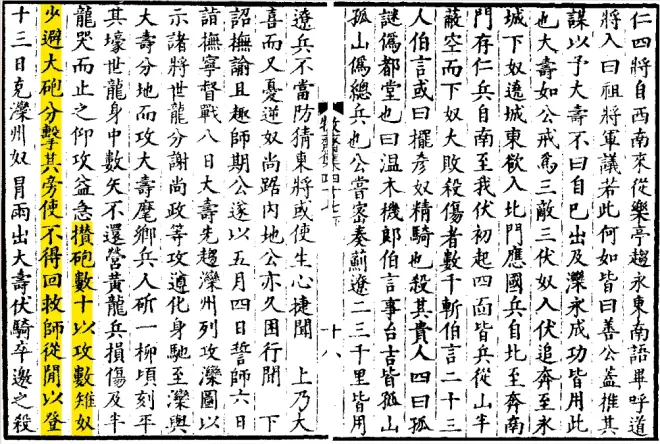 仁四將自西南來從樂亭趨永東南語畢呼道
將入曰祖將軍議若此何如皆曰善公蓋推其
謀以予大壽不曰自巳出及灤永成功皆用此
也大壽如公戒爲三敵三伏奴入伏追奔至永
城下奴遶城東欲入北門應國兵自北至奔南
門存仁兵自南至我伏初起四面皆兵從山半
蔽空而下奴大敗殺傷者數千斬伯言二十三
人伯言或曰擺彥奴精騎也殺其貴人四曰孤
謎僞都堂也曰温木機郎伯言事台吉皆孤山
孤山僞總兵也公嘗密奏薊遼二三千里皆用
牧齋集四十七下
十八
遼兵不當防猜東將或使生心捷聞 上乃大
喜而又憂逆奴尚踞内地公亦久困行閒 下
詔撫諭且趣師期公遂以五月四日誓師六日
詣撫寧督戰八日大壽先趨灤州列攻灤圖以
示諸將世龍分謝尚政等攻遵化身馳至灤與
大壽分地而攻大壽麾鄉兵人斫一柳頃刻平
其壕世龍身中數矢不還營黄龍兵損傷及半
龍哭而止之仰攻益急攢砲數十以攻數雉奴
少避大砲分擊其旁使不得回救師從閒以登
十三日克灤州奴冐雨出大壽伏騎卒邀之殺